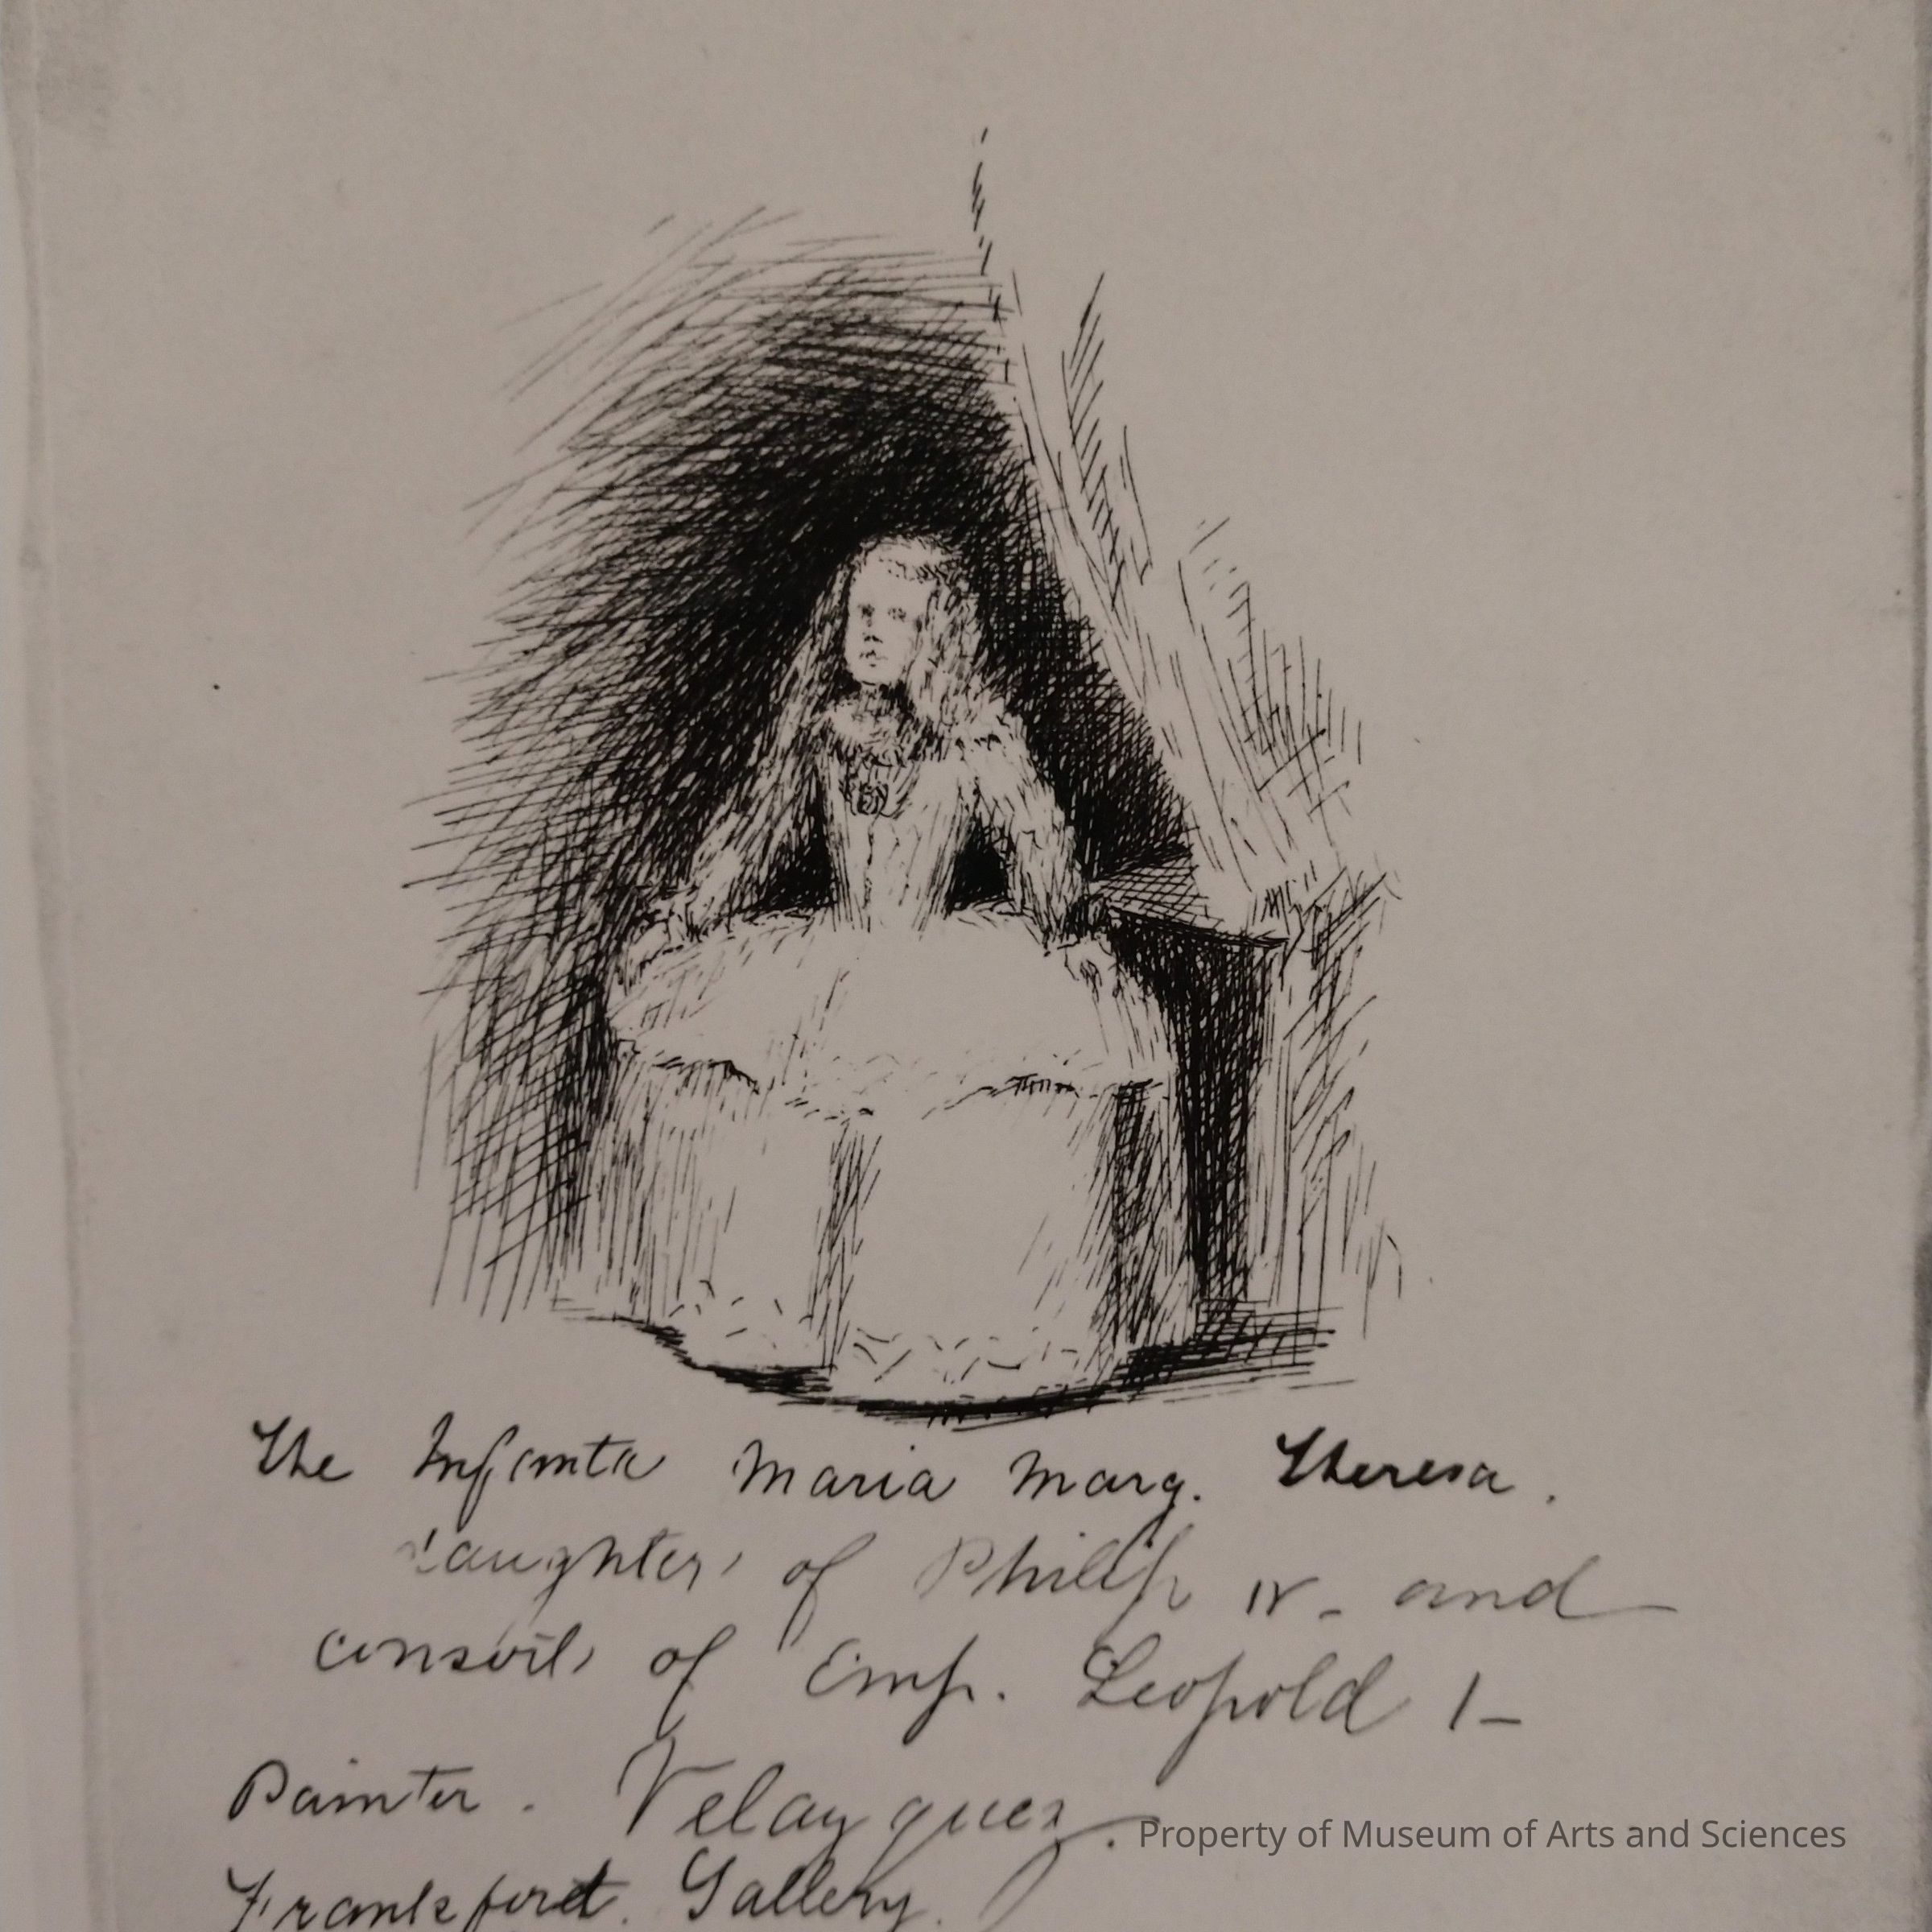 The Infanta Maria Marg. Theresa.
daughter of Philip IV - and
consort of Emp. Leopold I -
Painter. Velazquez.
Property of Museum of Arts and Sciences
Frankfort. Gallery.